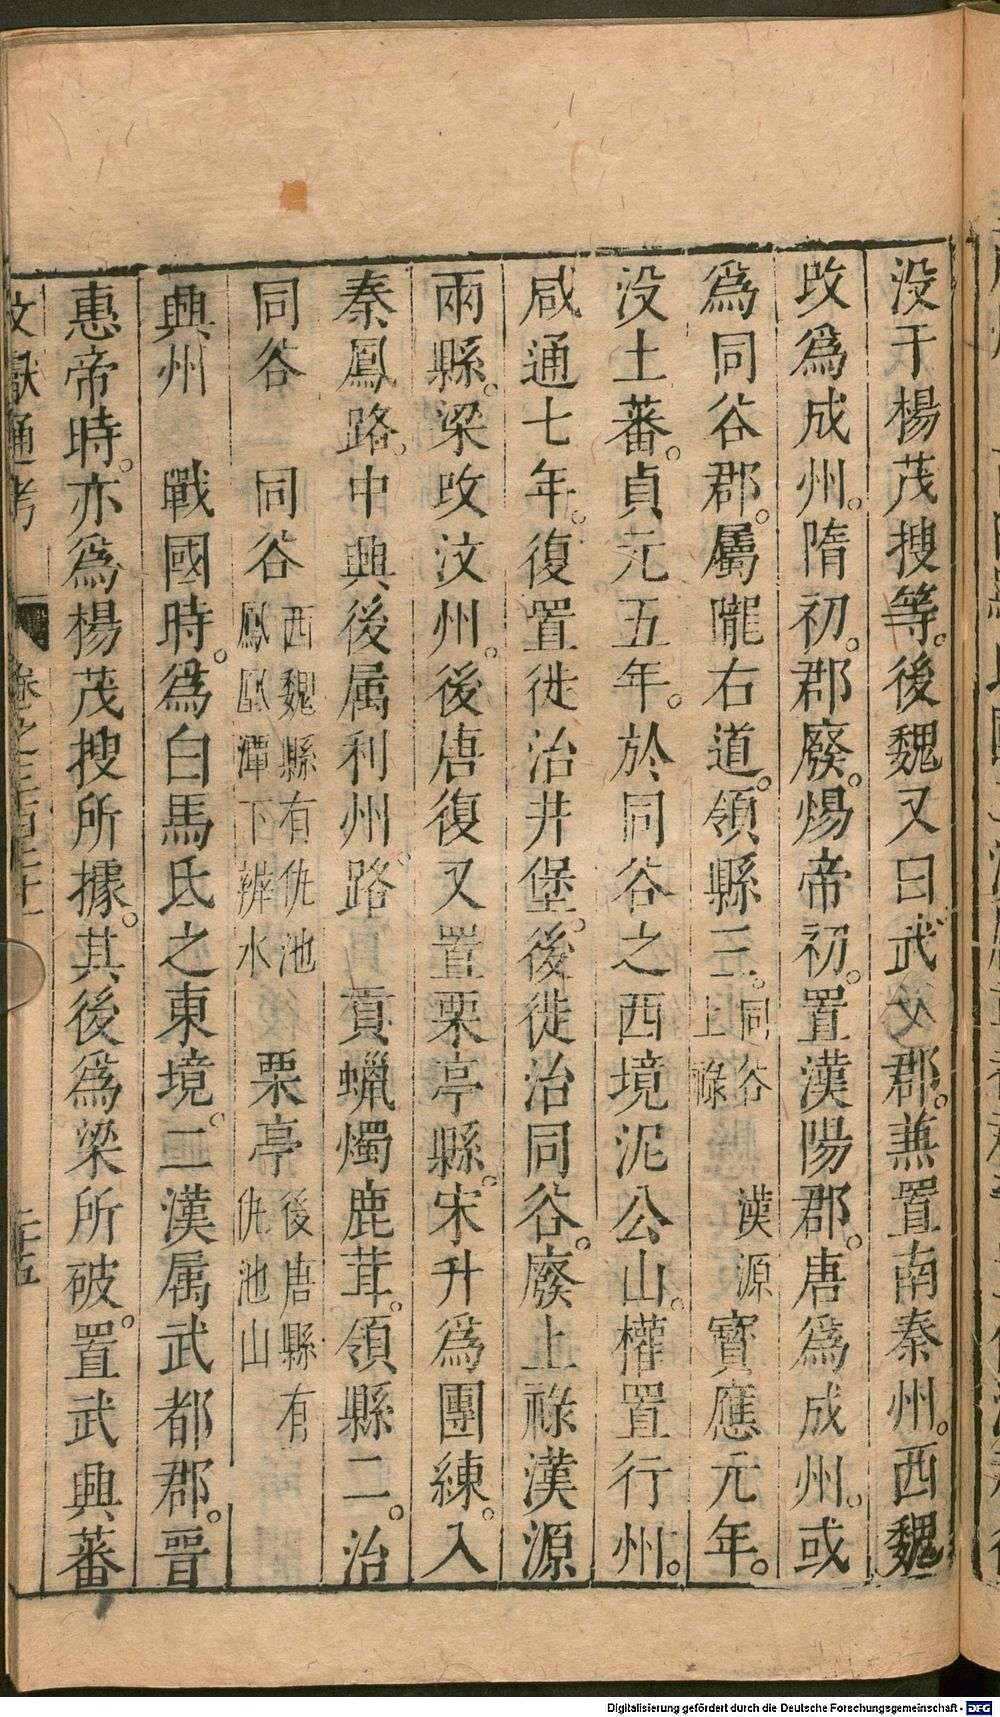 没于楊茂搜等。後魏又曰武父郡。兼置南秦州。西魏
改爲成州。隋初。郡廢。煬帝初。置漢陽郡。唐爲成州。或
爲同谷郡。屬隴右道。領縣三。同谷 上祿 漢源 寳應元年。
没土蕃。貞元五年。於同谷之西境泥公山。權置行州。
咸通七年。復置徙治井堡。後徙治同谷。廢上祿漢源
兩縣。梁改汶州。後唐復又置栗亭縣。宋升爲團練。入
秦鳳路。中興後属利州路。 貢蠟燭鹿茸。領縣二。治
同谷
同谷 西魏縣有仇池 鳳凰潭下辨水 栗亭 後唐縣有 仇池山
興州 戰國時。爲白馬氐之東境。二漢属武都郡。晉
惠帝時。亦爲楊茂搜所據。其後爲梁所破。置武興蕃
文獻通考 卷之三百二十一 二十五
Digitalisierung gefördert durch die Deutsche Forschungsgemeinschaft - DFG